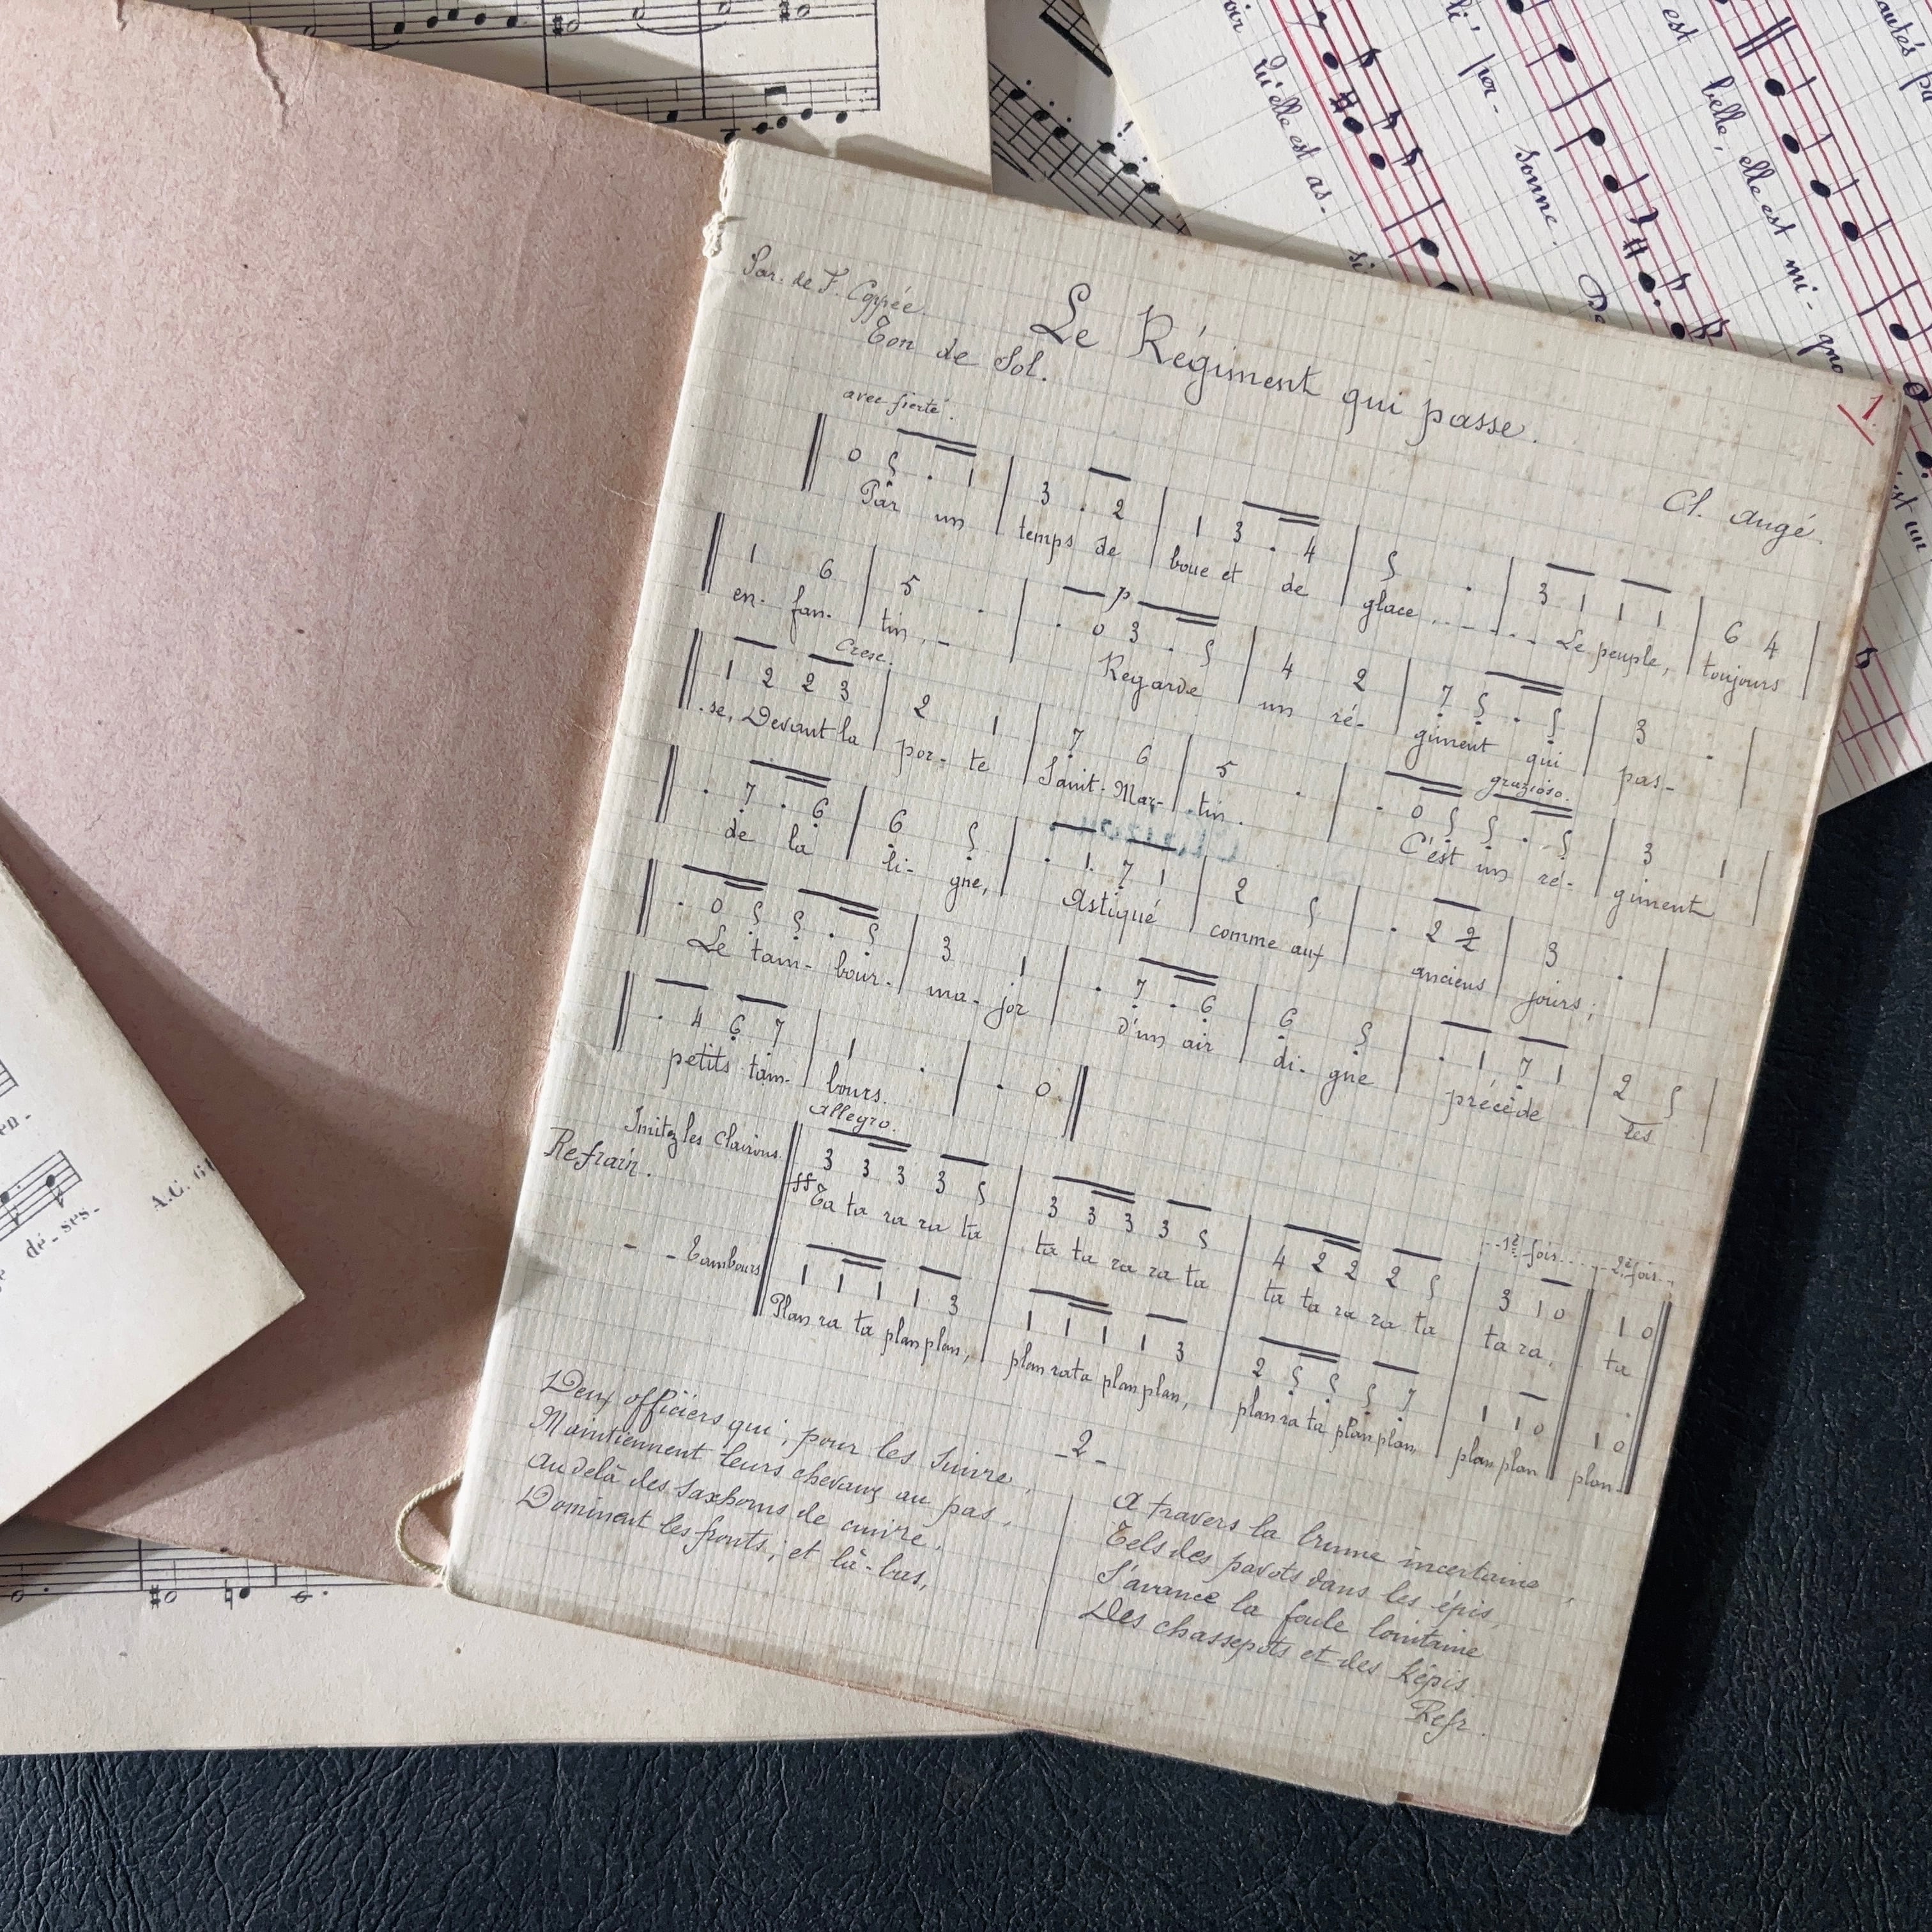 Par. de F. Coppée.
Le Régiment qui passe.
Ton de Sol.
1.
Cl. Augé.
avec fierté.
0 5 . 1 | 3 . 2 | 1 3 . 4 | 5 . | 3 1 1 1 | 6 4 |
Par un temps de boue et de glace, - - - - - Le peuple, toujours
1 6 | 5 . | . 0 3 . 5 | 4 2 | 7 5 . 5 | 3 . |
p
en- fan- tin, - Regarde un ré- giment qui pas-
Cresc.
1 2 2 3 | 2 1 | 7 6 | 5 . | . 0 5 5 . 5 | 3 1 |
grazioso.
-se, Devant la por- te Saint-Mar- tin. C'est un ré- giment
. 7 . 6 | 6 5 | . 1 7 1 | 2 5 | . 2 2 | 3 . |
de la li- gne, Astiqué comme aux anciens jours;
. 0 5 5 . 5 | 3 1 | . 7 . 6 | 6 5 | . 1 7 1 | 2 5 |
Le tam- bour- ma- jor d'un air di- gne précède les
. 4 6 7 | 1 . | . 0 ||
petits tam- bours.
Imitez les clairons.
Refrain.
allegro.
3 3 3 3 5 | 3 3 3 3 5 | 4 2 2 2 5 | 3 1 0 || 1 0 ||
1e fois 2e fois
ff Ta ta ra ra ta ta ta ra ra ta ta ta ra ra ta ta ra, ta
- - Tambours
1 1 1 1 3 | 1 1 1 1 3 | 2 5 5 5 7 | 1 1 0 || 1 0 ||
Plan ra ta plan plan, plan ra ta plan plan, plan ra ta plan plan, plan plan plan
-2-
Deux officiers qui, pour les suivre,
Maintiennent leurs chevaux au pas,
Au delà des saxhorns de cuivre,
Dominent les fronts; et là-bas,
A travers la brume incertaine,
Tels des pavots dans les épis,
S'avance la foule lointaine
Des chassepots et des képis.
Refr.
qu'elle est as- si
li' per- sonne. De
est belle, elle est mi- gno
est un
en-
dé- ses-